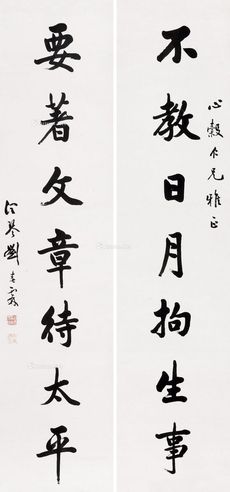 不教日月拘生事
心穀仁兄雅正
要著文章待太平
劉春霖